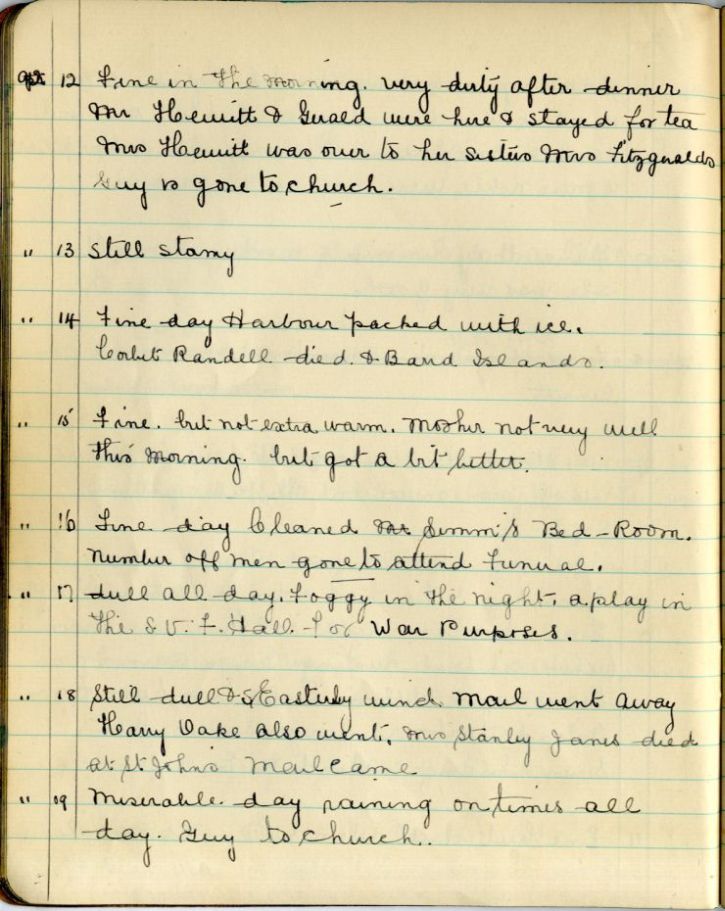 Apr 12 Fine in the morning. very dirty after dinner
Mr Hewitt & Gerald were here & stayed for tea
Mrs Hewitt was over to her sisters Mrs Fitzgeralds
Guy is gone to church.
" 13 Still stormy
" 14 Fine day Harbour packed with ice.
Corbit Randell died. & Barrd Islands.
" 15 Fine. but not extra warm. Mother not very well
this morning. but got a bit better.
" 16 Fine day Cleaned Simm's Bed-Room.
Number off men gone to attend Funural.
" 17 dull all day. Foggy in the night. a play in
the S. U. F. Hall. For War Purposes.
" 18 Still dull & Easterly wind. Mail went away
Harry Oake also went. Mrs Stanley Janes died
at St Johns Mail came
" 19 Miserable day raining on times all
day. Guy to church..